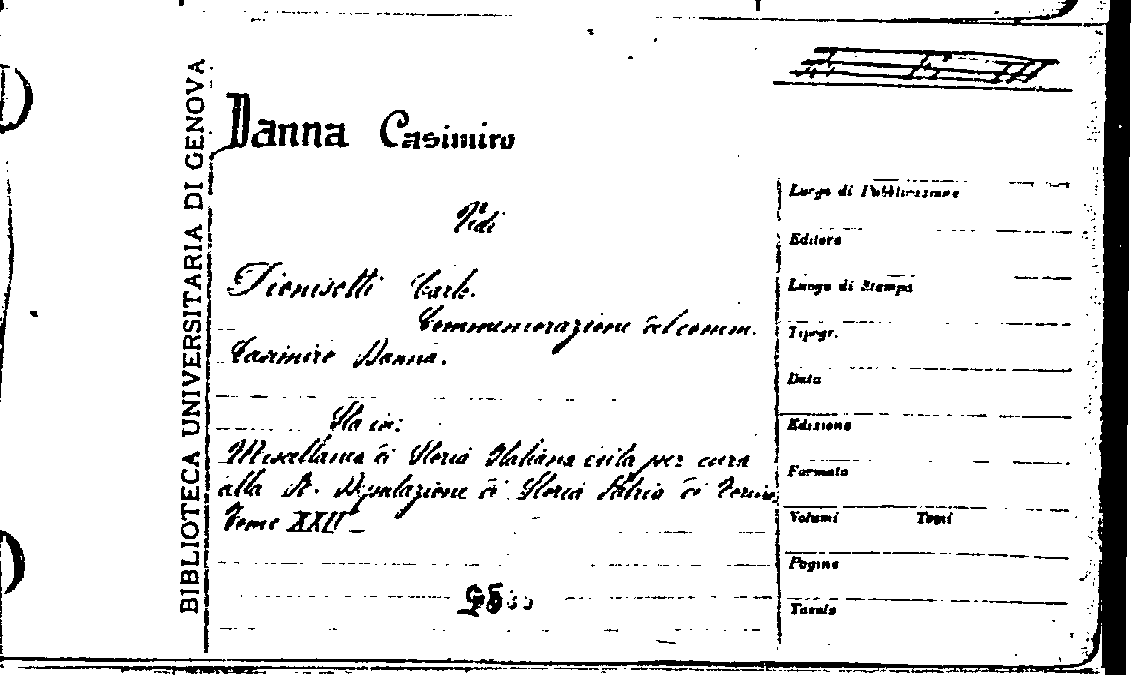 BIBLIOTECA UNIVERSITARIA DI GENOVA
Danna Casimiro
Vedi
Dionisotti Carlo.
Commemorazione del comm.
Casimiro Danna.
Sta in:
Miscellanea di Storia Italiana edita per cura
della R. Deputazione di Storia Patria di Torino
Tomo XXII
Luogo di Pubblicazione
Editore
Luogo di Stampa
Tipogr.
Data
Edizione
Formato
Volumi Tomi
Pagine
Tavole